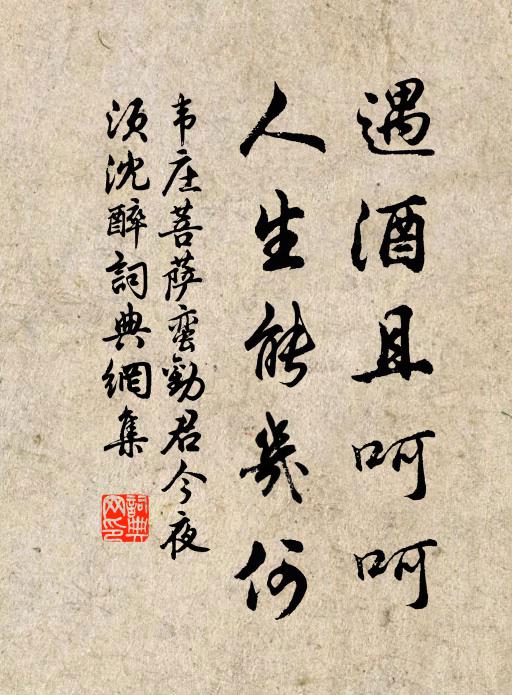 遇酒且呵呵
人生能幾何
韦庄菩萨蛮勸君今夜
須沈醉詞典網集
詞典
网印